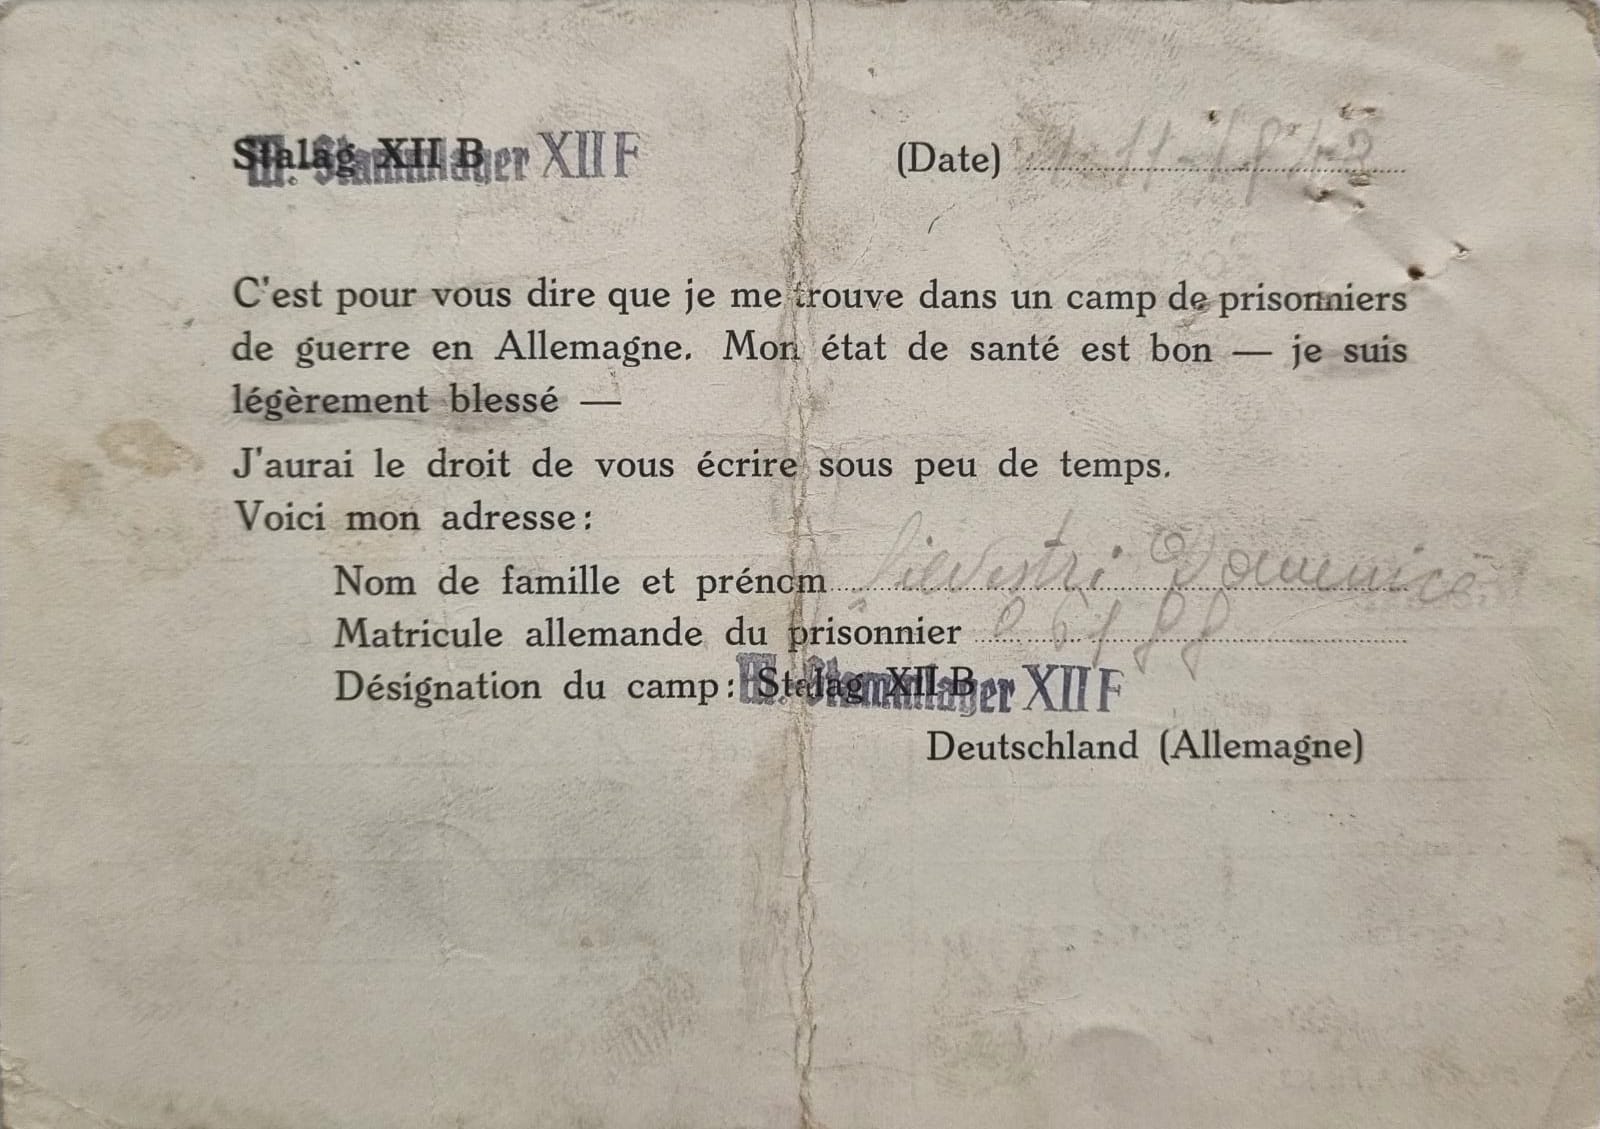 Stalag XII B M. Stammlager XII F (Date) 1-11-1943
C'est pour vous dire que je me trouve dans un camp de prisonniers
de guerre en Allemagne. Mon état de santé est bon — je suis
légèrement blessé —
J'aurai le droit de vous écrire sous peu de temps.
Voici mon adresse:
Nom de famille et prénom Silvestri Domenico
Matricule allemande du prisonnier
Désignation du camp: Stalag XII B M. Stammlager XII F
Deutschland (Allemagne)